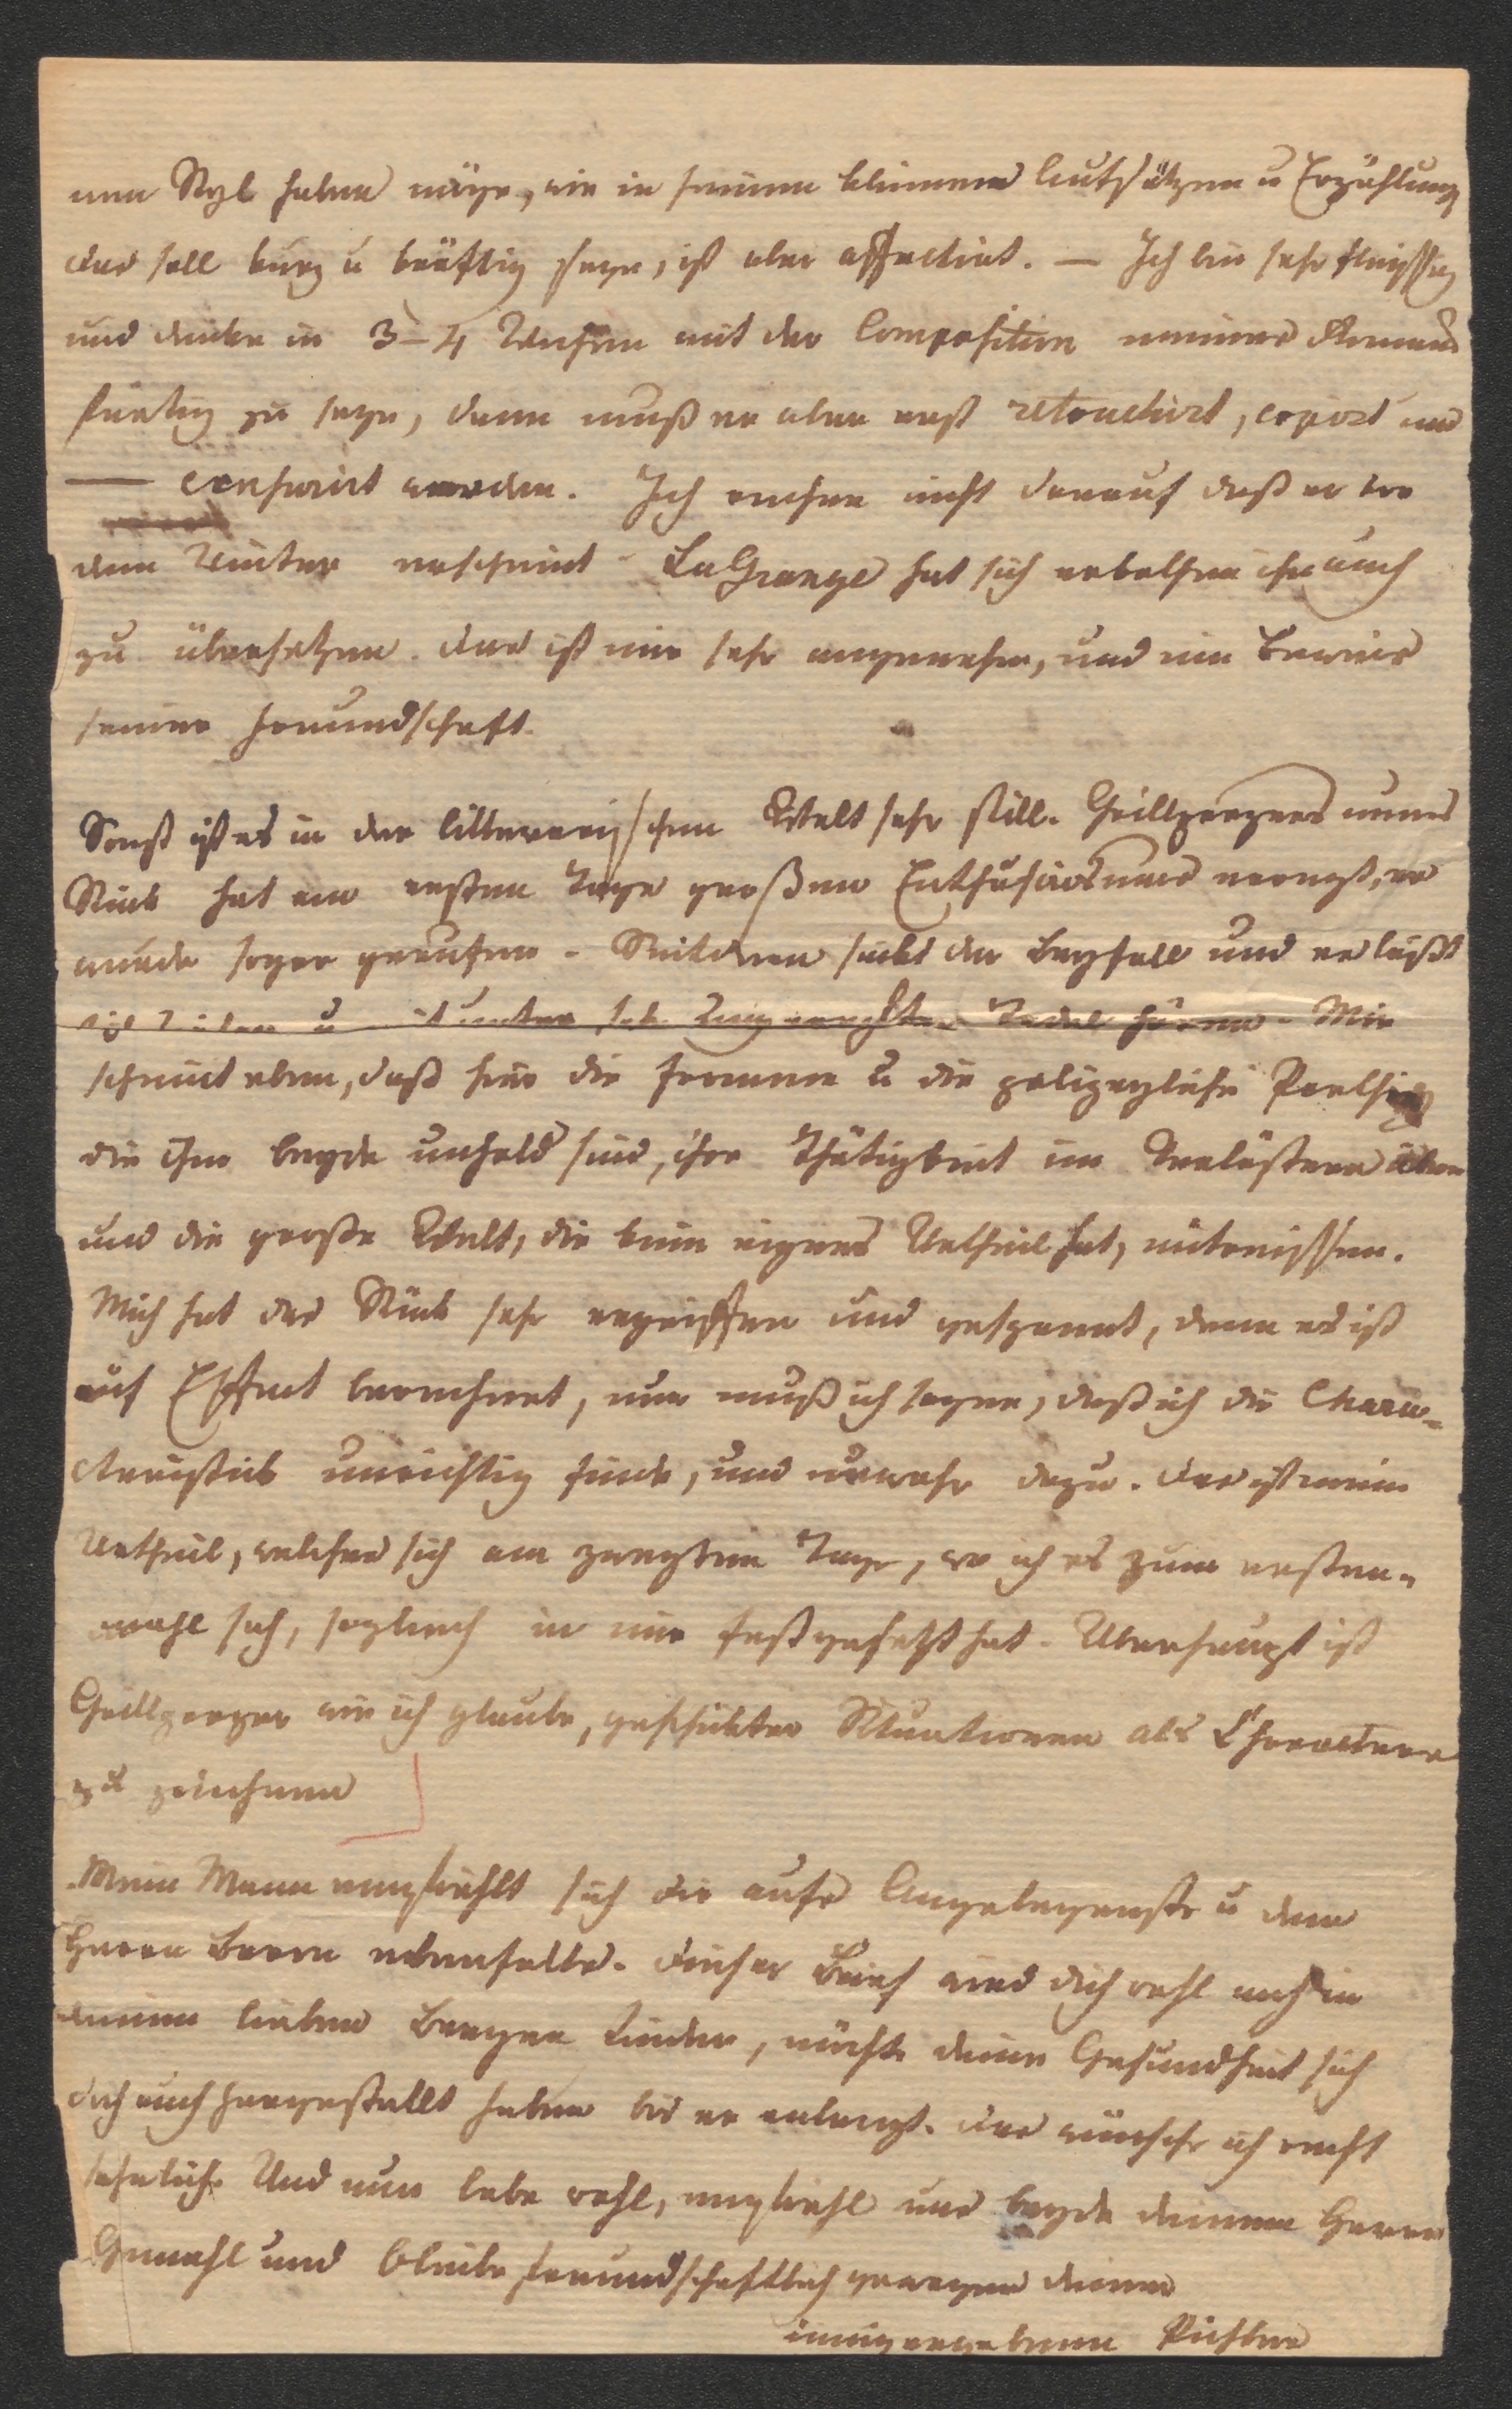 nen Styl haben möge, wie in seinen kleinern Aufsätzen u Erzählung
das soll kurz u kräftig seyn, ist aber affectirt. — Ich bin sehr fleißig
und denke in 3–4 Wochen mit der Composition meines Romans
fertig zu seyn, dann muß er aber erst retouchirt, copirt und
— censurirt werden. Ich rechne nicht darauf daß er vor
dem Winter erscheint - La Grange hat sich erbothen ihn auch
zu übersetzen. das ist mir sehr angenehm, und ein Beweis
seiner Freundschaft.
Sonst ist es in der litterarischen Welt sehr still. Grillparzers neues
Stück hat am ersten Tage großen Enthusiasmus erregt, er
wurde sogar gerufen - Seitdem sinkt der Beyfall und es läßt
sich u mitunter sehr ungerechter Tadel hören - Mir
scheint eben, daß hier die u die polizeyliche
die ihm beyde unhold sind, ihre Thätigkeit im Verlästern üben
und die große Welt, die kein eignes Urtheil hat, mitreißen.
Mich hat das Stück sehr ergriffen und gespannt, denn es ist
auf Effect berechnet, nur muß ich sagen, daß ich die Chara-
cteristik unrichtig finde, und unwahr dazu. das ist mein
Urtheil, welches sich am zweyten Tage, wo ich es zum ersten-
mahl sah, sogleich in mir festgesetzt hat. Überhaupt ist
Grillparzer wie ich glaube, geschickter Situationen als Charactere
zu zeichnen
Mein Mann empfiehlt sich dir aufs Angelegenste u dem
Herrn Baron ebenfalls. dieser Brief wird dich wohl noch in
deinen lieben Bergen finden, möchte deine Gesundheit sich
doch auch hergestellt haben bis er anlangt. das wünsche ich recht
sehnlich. Und nun lebe wohl, empfiehl uns beyde deinem Herrn
Gemahl und bleibe freundschaftlich gewogen deiner
innigergebenen Pichler